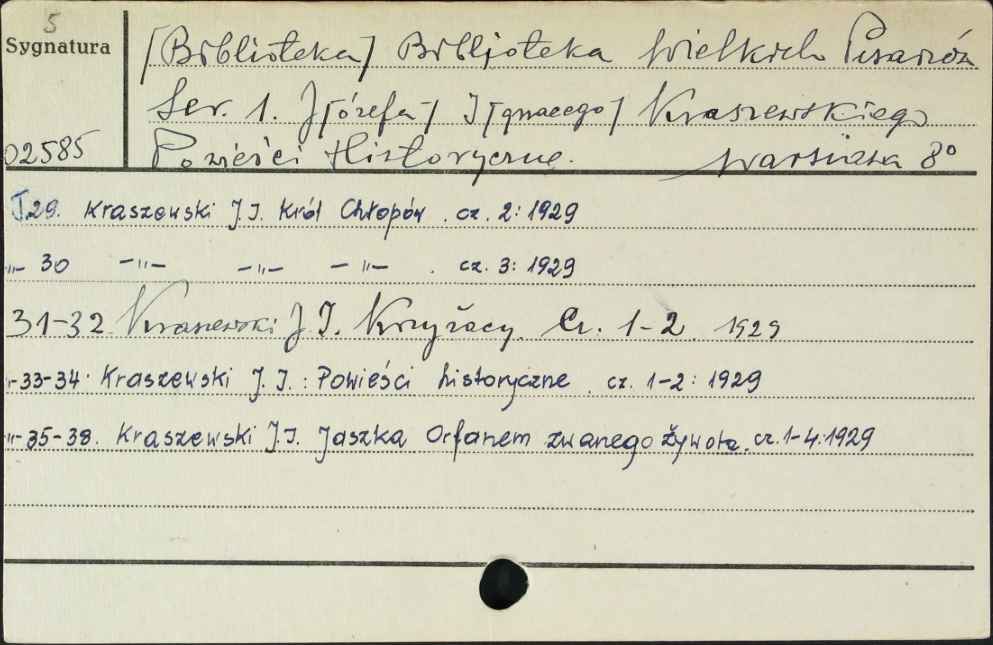 5
Sygnatura
[Biblioteka] Bibljoteka Wielkich Pisarzów
Ser. 1. J[ózefa] I[gnacego] Kraszewskiego
02585 Powieści Historyczne. Warszawa 8°
T.29. Kraszewski J.I. Król Chłopów. cz. 2: 1929
-"- 30 -"- -"- -"- . cz. 3: 1929
31-32. Kraszewski J I. Krzyżacy. Cz. 1-2. 1929
"-33-34. Kraszewski J. I.: Powieści historyczne. cz. 1-2: 1929
-"-35-38. Kraszewski J.I. Jaszka Orfanem zwanego żywota. cz. 1-4: 1929